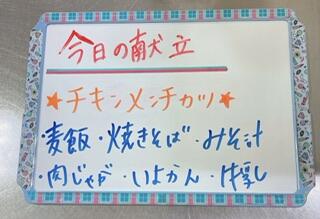 今日の献立
★チキンメンチカツ★
・麦飯・焼きそば・みそ汁
・肉じゃが・いよかん・牛乳